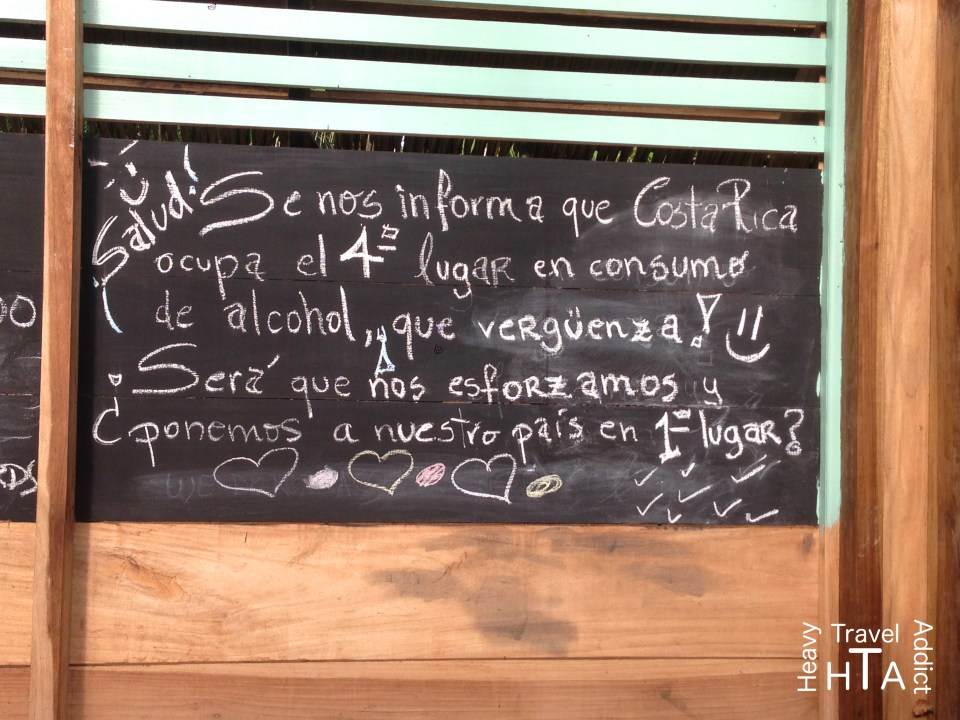 Salud!
Se nos informa que Costa Rica
ocupa el 4º lugar en consumo
de alcohol, que vergüenza!
Será que nos esforzamos y
¿ponemos a nuestro país en 1º lugar?
Heavy Travel Addict
HTA